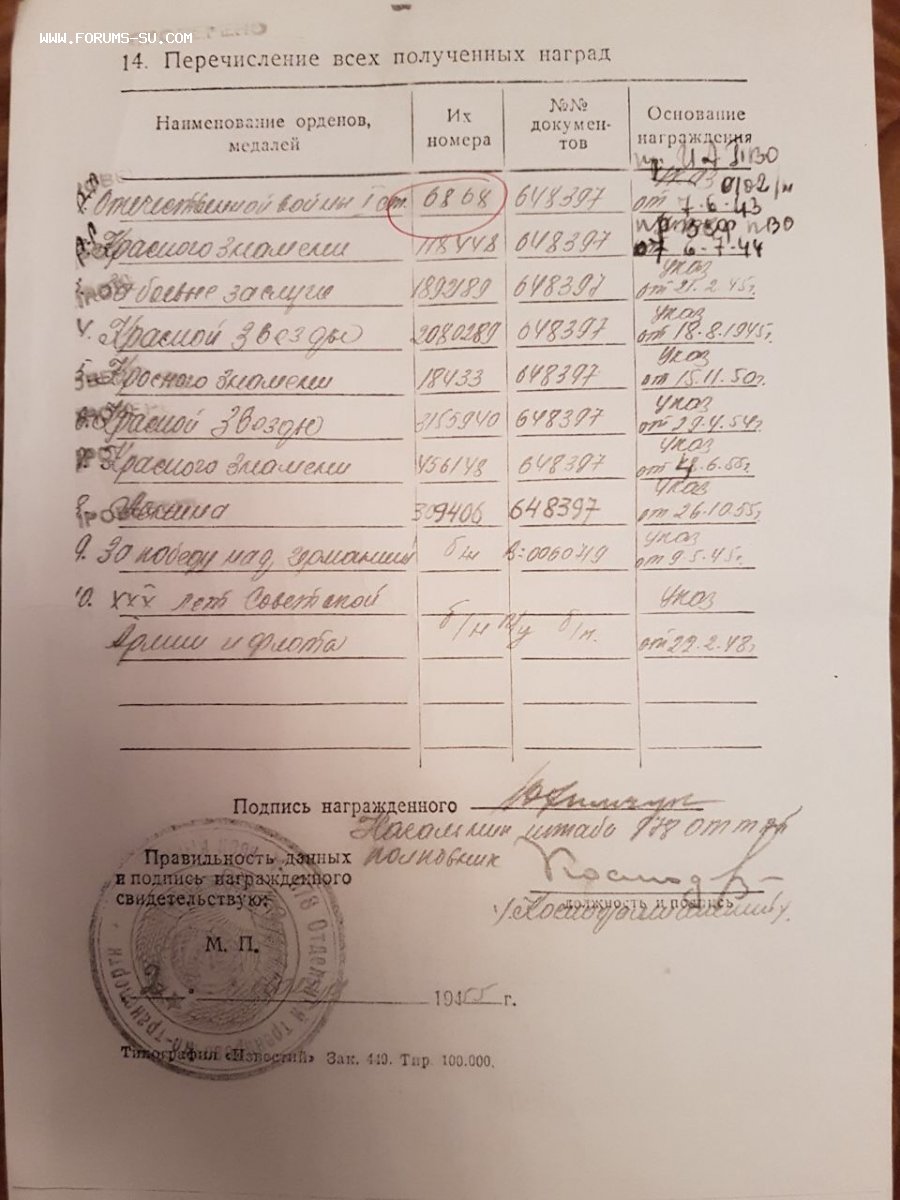 WWW.FORUMS-SU.COM
14. Перечисление всех полученных наград
Наименование орденов, медалей
Их номера
№№ докумен-тов
Основание награждения
Отечественной войны I ст. 6868 648397 от 7-6-43
Красного знамени 118448 648397 от 6-7-44
За боевые заслуги 1892189 648397 указ от 21.2.45г.
4. Красной Звезды 2080289 648397 указ от 18.8.1945г.
5. Красного знамени 18433 648397 указ от 15.11.50г.
6. Красной Звезды 3155940 648397 указ от 29.4.54г.
7. Красного знамени 456148 648397 указ от 4.6.55г.
8. Ленина 309406 648397 указ от 26.10.55г.
9. За победу над Германией б/н В:006049 указ от 9.5.45г.
10. XXX лет Советской указ
Армии и флота б/н б/н. от 22.2.48г.
Подпись награжденного
Начальник штаба 178
полковник
Правильность данных
и подпись награжденного
свидетельствую:
должность и подпись
М. П.
1955 г.
Типография «Известий» Зак. 449. Тир. 100.000.